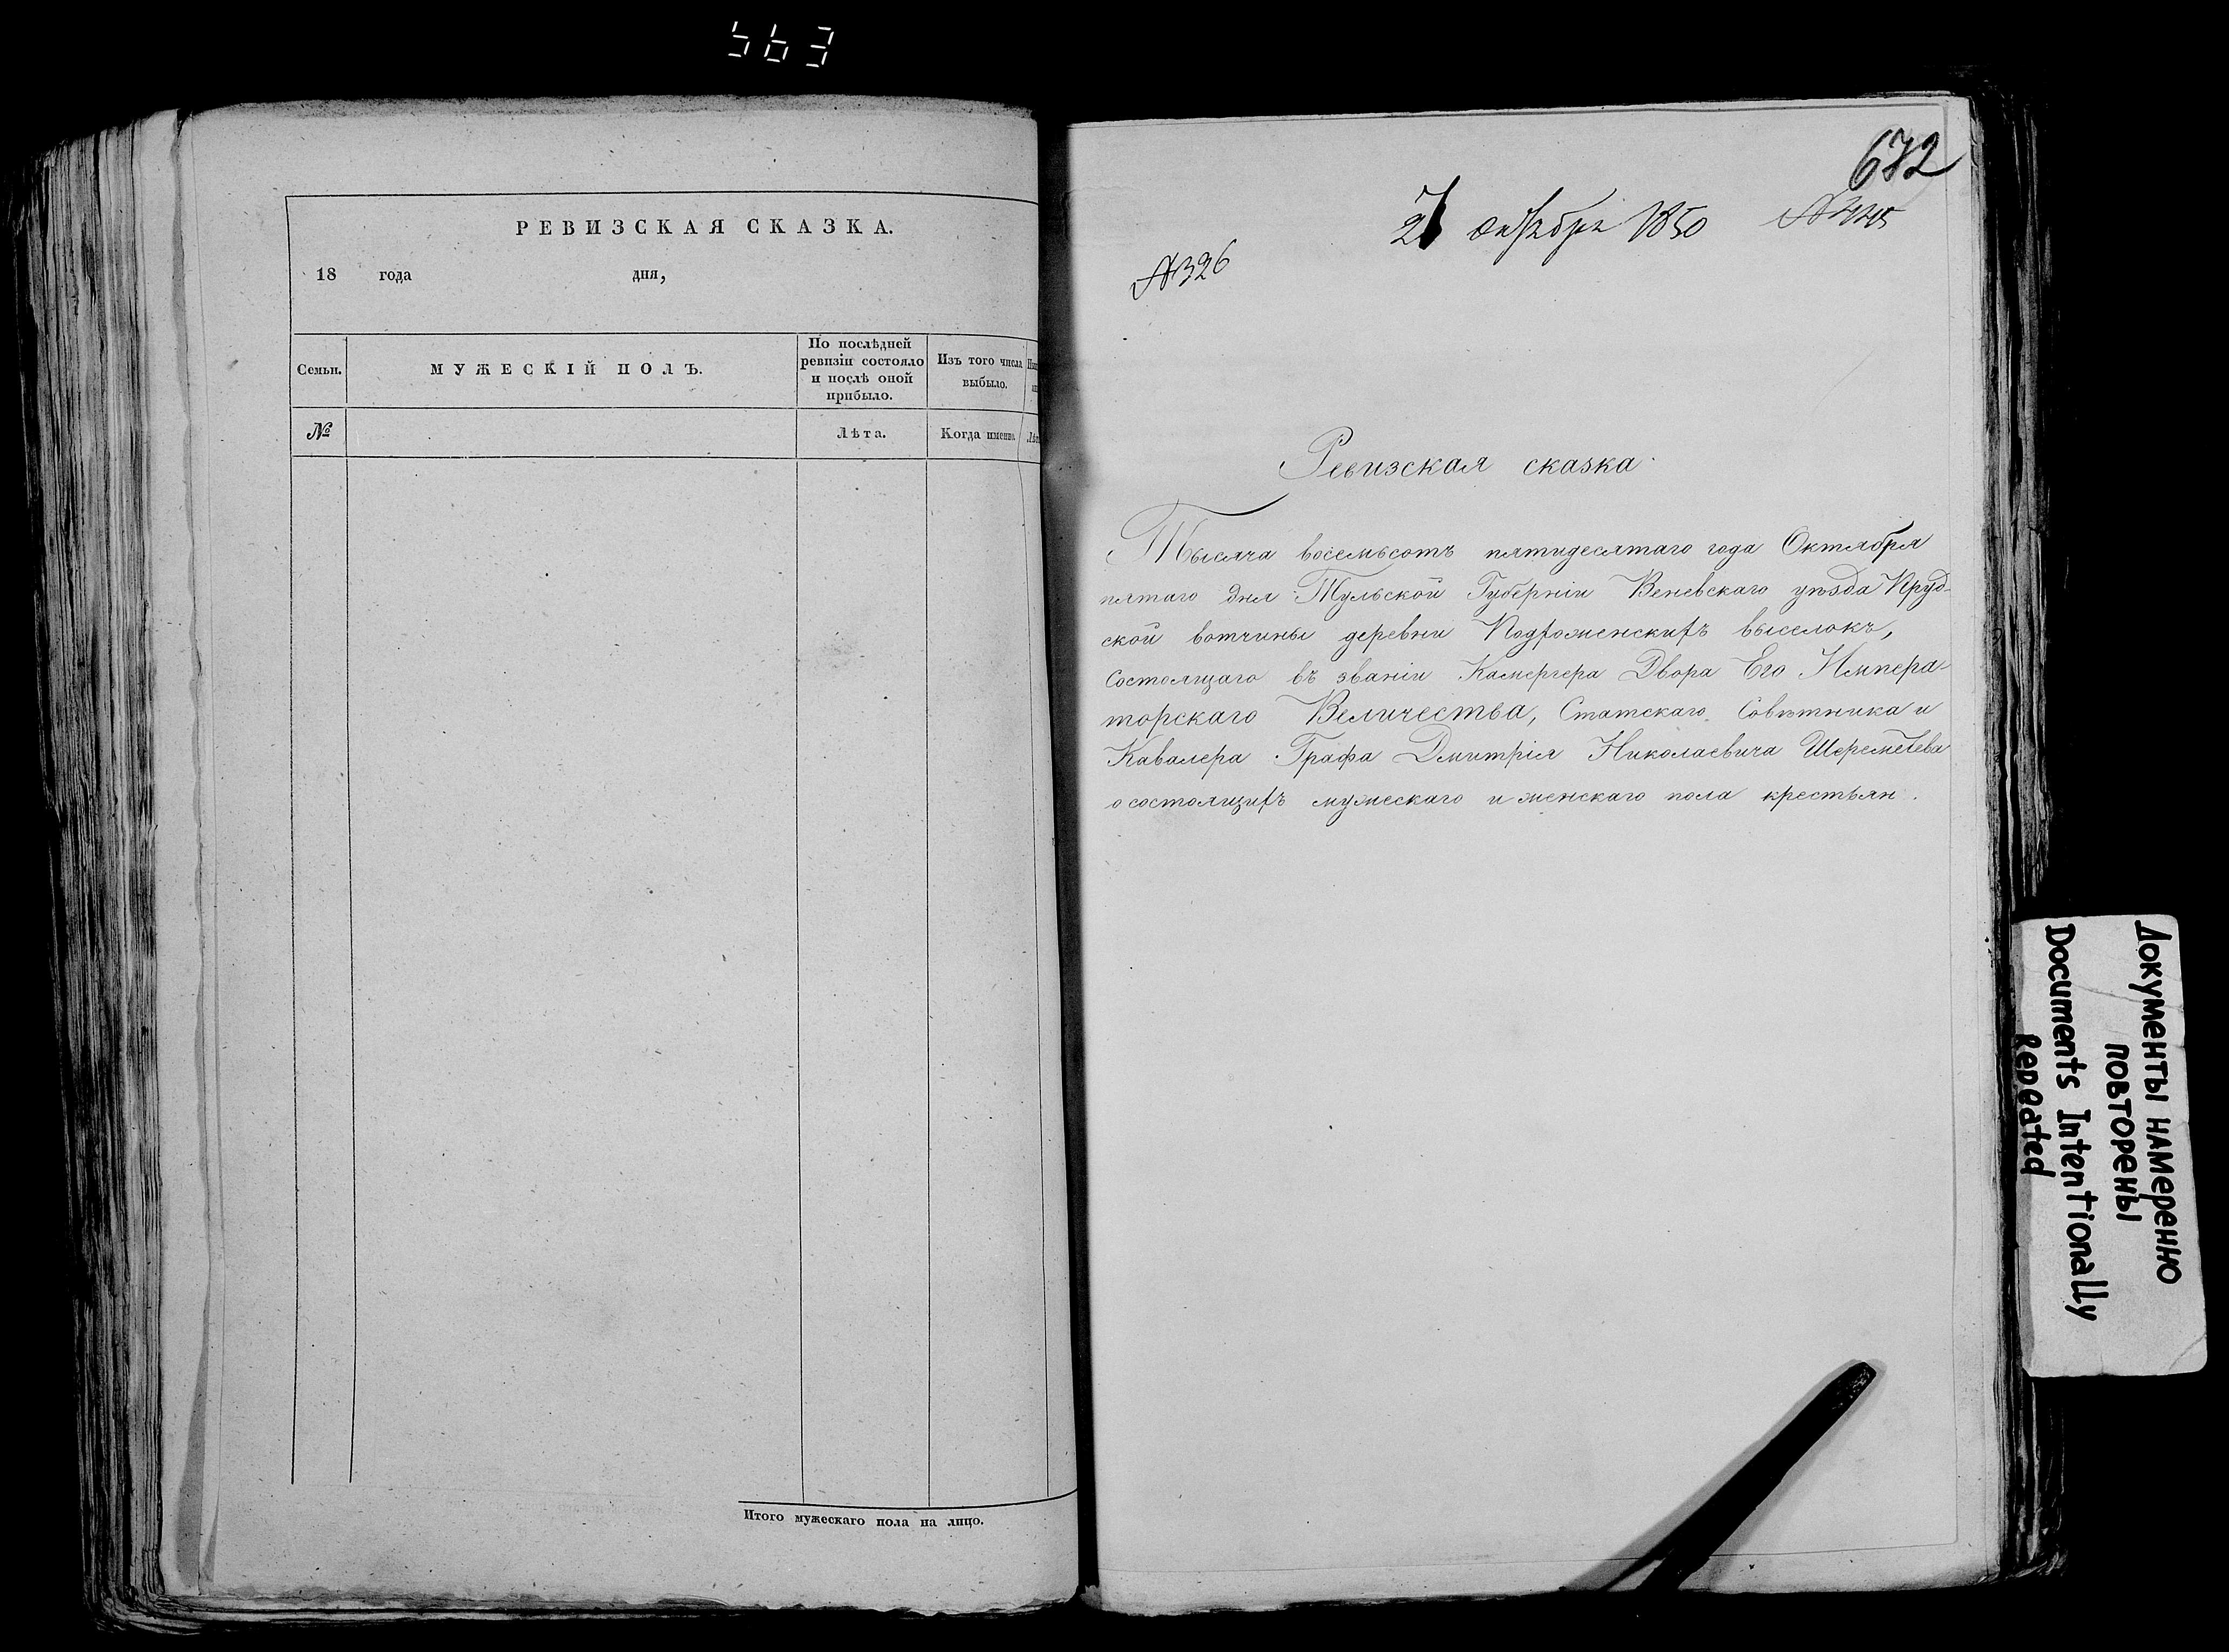 563
РЕВИЗСКАЯ СКАЗКА.
18 года дня,
Семьи.
МУЖЕСКІЙ ПОЛЪ.
По послѣдней
ревизіи состояло
и послѣ оной
прибыло.
Изъ того числа
выбыло.
№
Лѣта.
Когда именно.
Итого мужескаго пола на лицо.
672
27 октября 1850
№ 326
Ревизская сказка.
Тысяча восемьсотъ пятидесятаго года Октября
пятаго дня Тульской Губерніи Веневскаго уѣзда Пруд-
ской вотчины деревни Подхоженскихъ выселокъ,
Состоящаго въ званіи Камергера Двора Его Импера-
торскаго Величества, Статскаго Совѣтника и
Кавалера Графа Дмитрія Николаевича Шереметева
о состоящихъ мужескаго и женскаго пола крестьян.
Документы намеренно
повторены
Documents Intentionally
Repeated